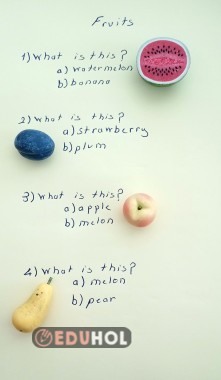 Fruits
1) What is this?
a) watermelon
b) banana
2) What is this?
a) strawberry
b) plum
3) What is this?
a) apple
b) melon
4) What is this?
a) melon
b) pear
EDUHOL